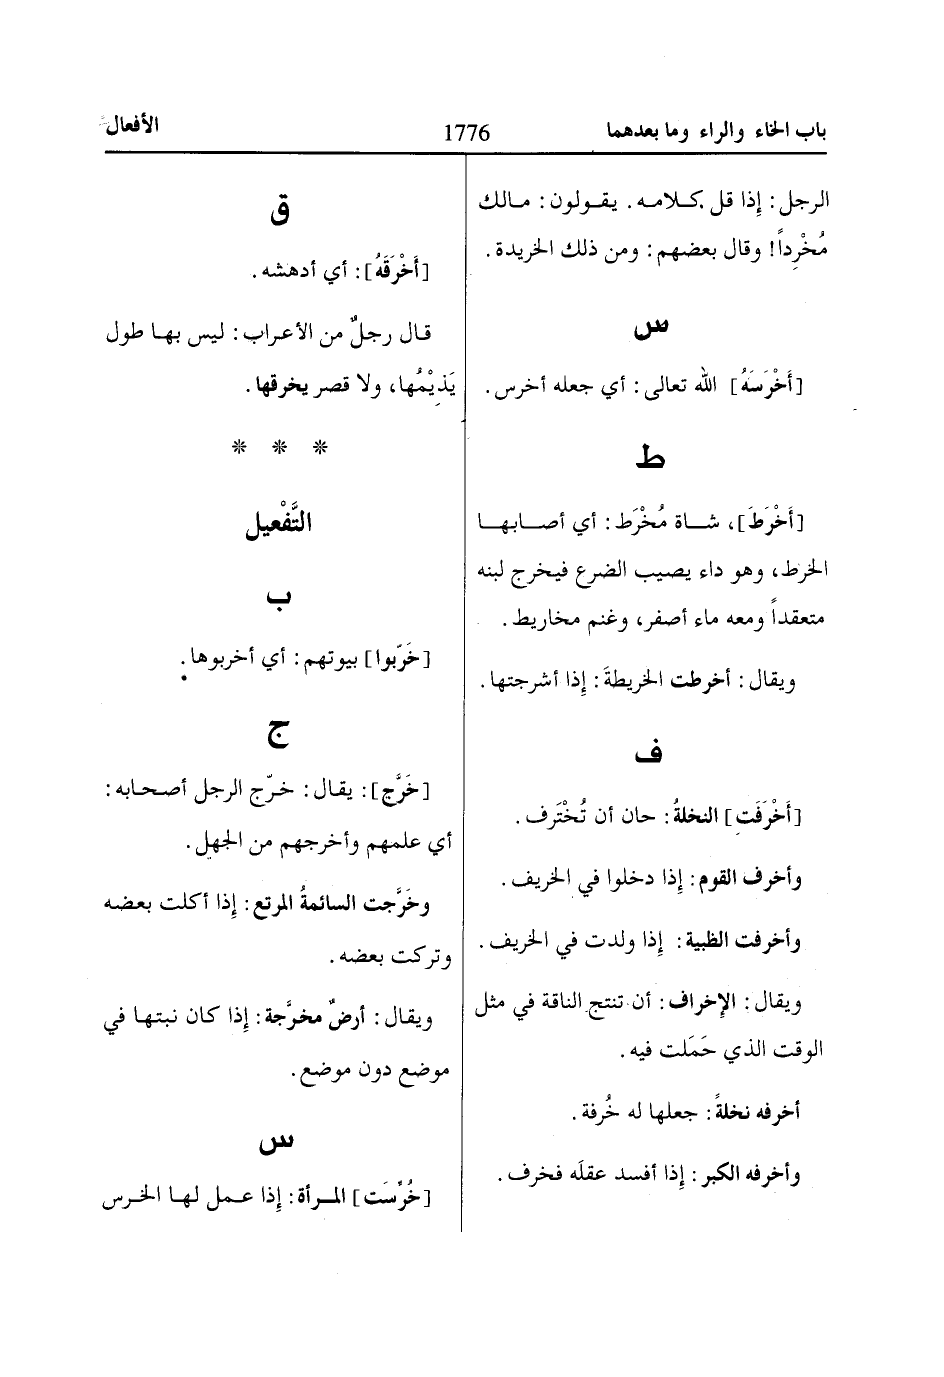 باب الخاء والراء وما بعدهما
1776
الأفعال
الرجل: إِذا قل كلامه. يقولون: مالك
مُخْرِداً! وقال بعضهم: ومن ذلك الخريدة.
س
[أَخْرَسَهُ] الله تعالى: أي جعله أخرس.
ط
[أَخْرَطَ]، شاة مُخْرَط: أي أصابها
الخرط، وهو داء يصيب الضرع فيخرج لبنه
متعقداً ومعه ماء أصفر، وغنم مخاريط.
ويقال: أخرطت الخريطةَ: إِذا أشرجتها.
ف
[أَخْرَفَتِ] النخلةُ: حان أن تُخْتَرف.
وأخرف القوم: إِذا دخلوا في الخريف.
وأخرفت الظبية: إِذا ولدت في الخريف.
ويقال: الإِخراف: أن تنتج الناقة في مثل
الوقت الذي حَمَلت فيه.
أخرفه نخلةً: جعلها له خُرفة.
وأخرفه الكبر: إِذا أفسد عقلَه فخرف.
ق
[أَخْرَقَهُ]: أي أدهشه.
قال رجلٌ من الأعراب: ليس بها طول
يَذِيْمُها، ولا قصر يخرقها.
* * *
التَّفْعيل
ب
[خَرّبوا] بيوتهم: أي أخربوها.
ج
[خَرَّج]: يقال: خرّج الرجل أصحابه:
أي علمهم وأخرجهم من الجهل.
وخَرَّجت السائمةُ المرتع: إِذا أكلت بعضه
وتركت بعضه.
ويقال: أرضٌ مخرَّجة: إِذا كان نبتها في
موضع دون موضع.
س
[خُرِّسَت] المرأة: إِذا عمل لها الخرس